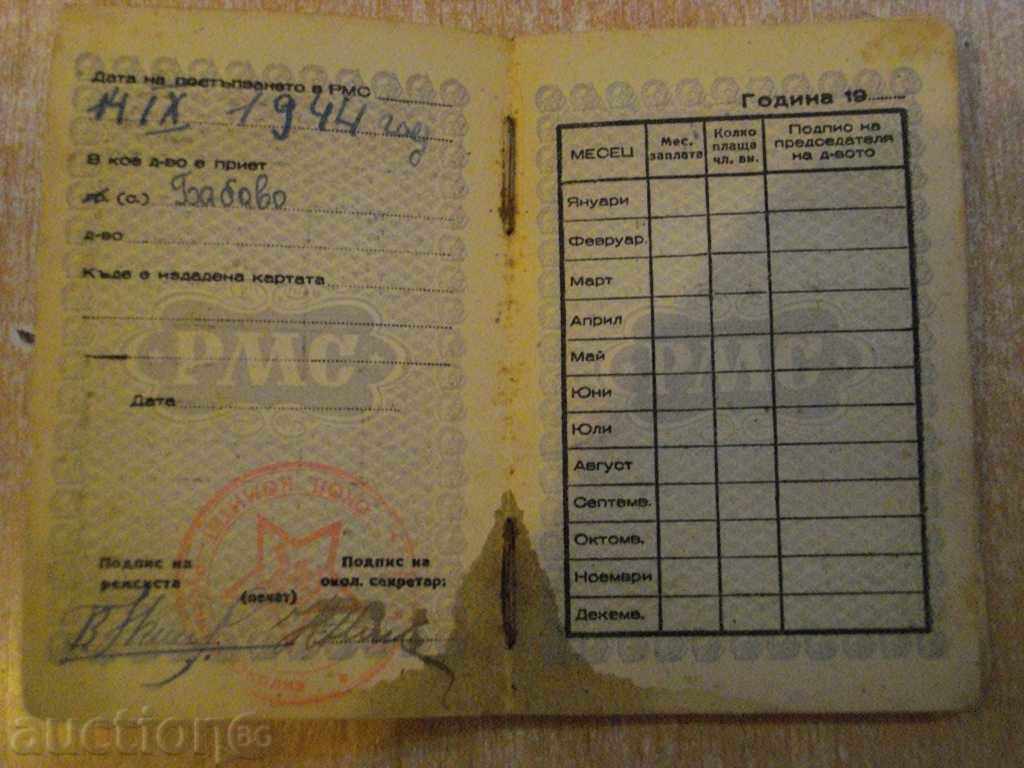 Дата на постъпването в РМС
14 IX 1944 год
В кое д-во е приет
(с.) Бабово
д-во
Къде е издадена картата
РМС
Дата
Подпис на
ремсиста
(печат)
Подпис на
окол. секретар:
Година 19
МЕСЕЦ
Мес. заплата
Колко плаща чл. вн.
Подпис на председателя на д-вото
Януари
Февруар.
Март
Април
Май
Юни
Юли
Август
Септемв.
Октомв.
Ноември
Декемв.
РМС
auction.BG